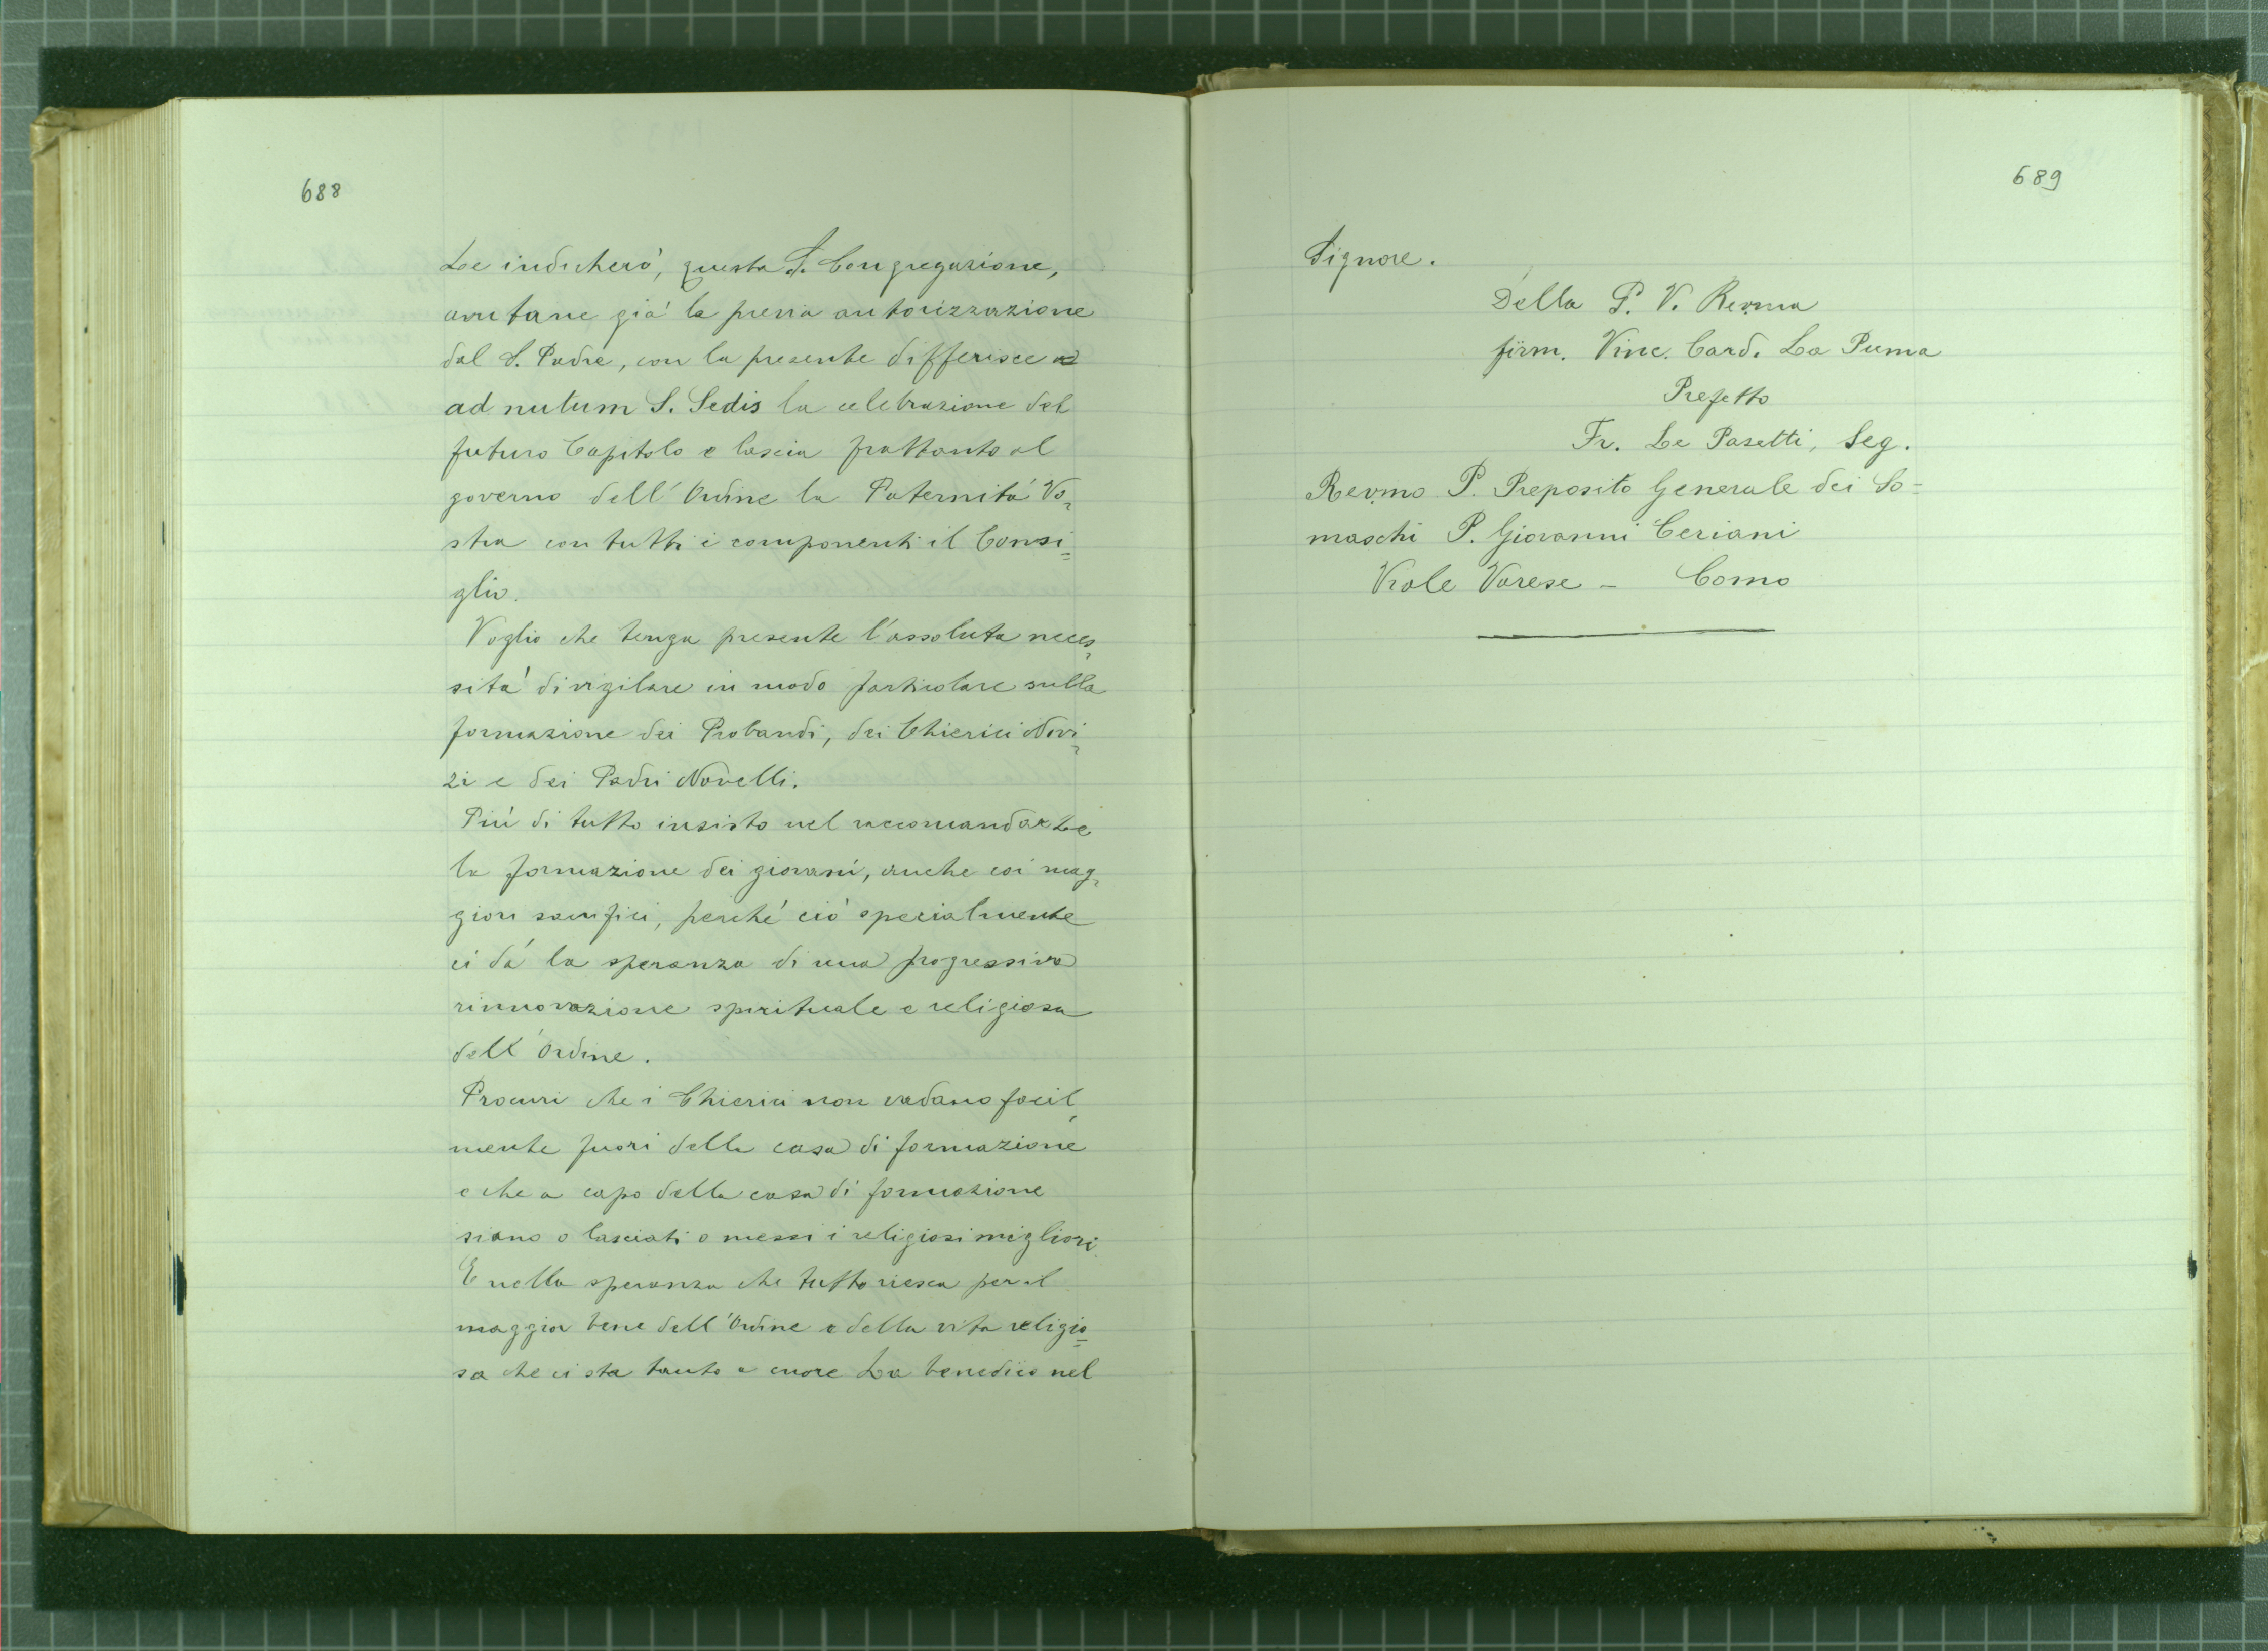 688
Le indicherò, questa S. Congregazione,
avutane già la previa autorizzazione
dal S. Padre, con la presente differisce ad
ad nutum S. Sedis la celebrazione del
futuro Capitolo e lascia frattanto al
governo dell'Ordine la Paternità Vo-
stra con tutti i componenti il Consi=
glio.
Voglio che tenga presente l'assoluta neces-
sità di vigilare in modo particolare sulla
formazione dei Probandi, dei Chierici Novi-
zi e dei Padri Novelli.
Più di tutto insisto nel raccomandarLe
la formazione dei giovani, anche coi mag-
giori sacrifici, perché ciò specialmente
ci dà la speranza di una progressiva
rinnovazione spirituale e religiosa
dell'Ordine.
Procuri che i Chierici non vadano facil-
mente fuori della casa di formazione
e che a capo della casa di formazione
siano o lasciati o messi i religiosi migliori.
E nella speranza che tutto riesca per il
maggior bene dell'Ordine e della vita religio=
sa che ci sta tanto a cuore La benedico nel
689
Signore.
Della P. V. Rev.ma
firm. Vinc. Card. La Puma
Prefetto
Fr. L. e Pasetti, Seg.
Rev.mo P. Preposito Generale dei So=
maschi P. Giovanni Ceriani
Viale Varese - Como